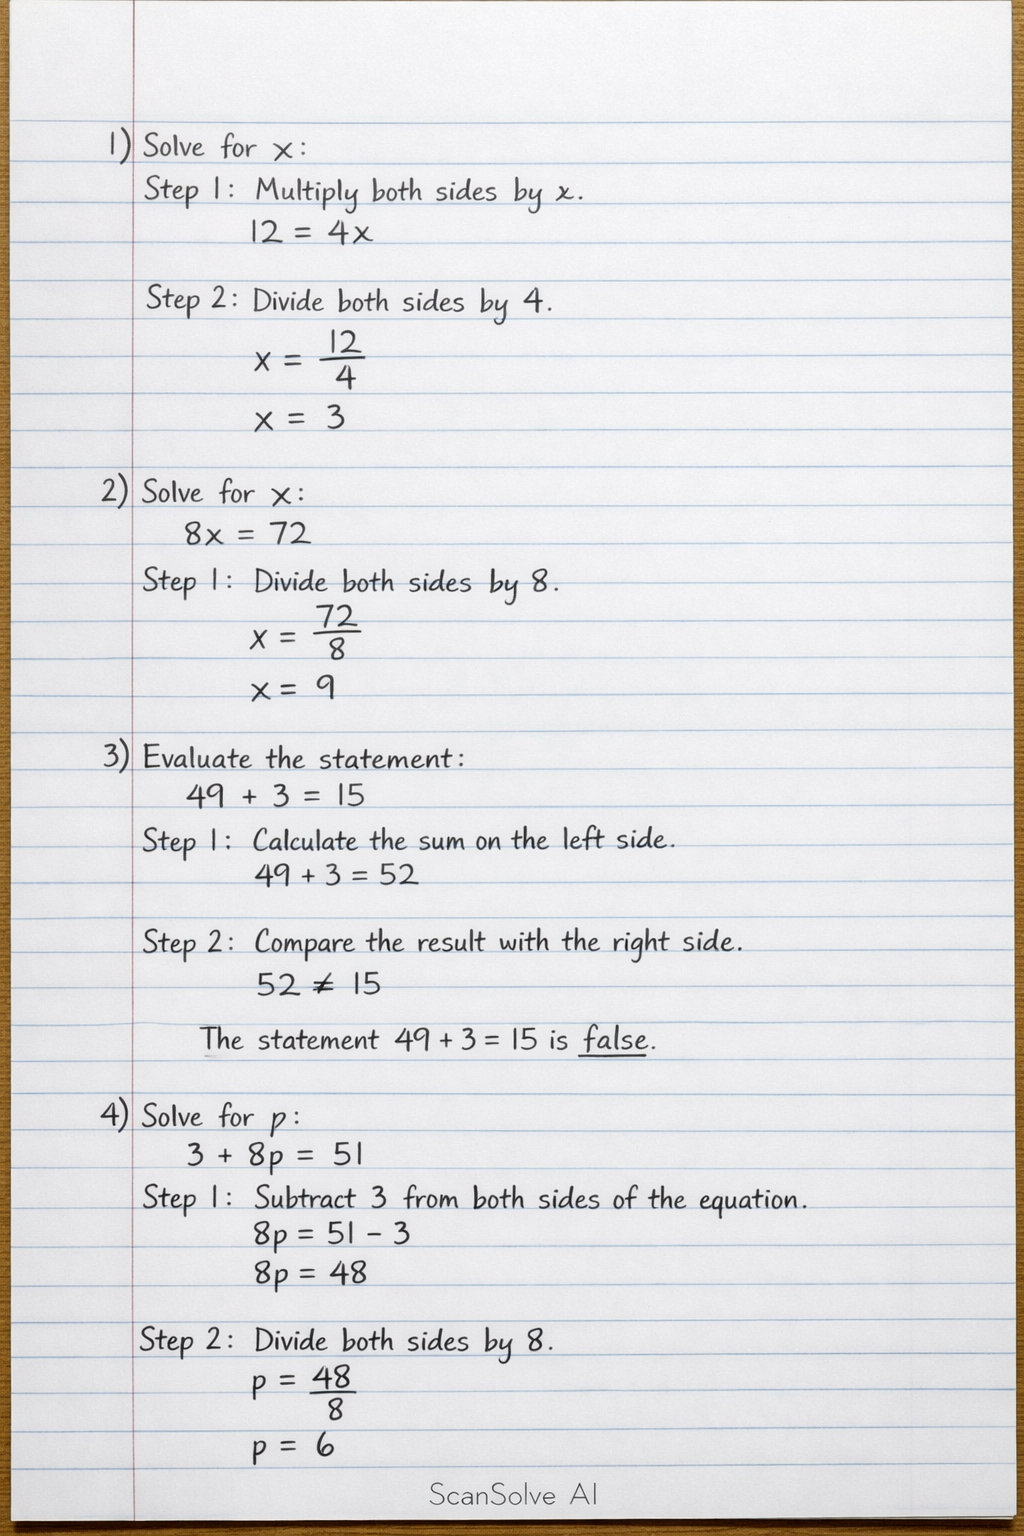 1) Solve for x:
Step 1: Multiply both sides by x.
12 = 4x
Step 2: Divide both sides by 4.
x = 12/4
x = 3
2) Solve for x:
8x = 72
Step 1: Divide both sides by 8.
x = 72/8
x = 9
3) Evaluate the statement:
49 + 3 = 15
Step 1: Calculate the sum on the left side.
49 + 3 = 52
Step 2: Compare the result with the right side.
52 ≠ 15
The statement 49 + 3 = 15 is false.
4) Solve for p:
3 + 8p = 51
Step 1: Subtract 3 from both sides of the equation.
8p = 51 - 3
8p = 48
Step 2: Divide both sides by 8.
p = 48/8
p = 6
ScanSolve AI